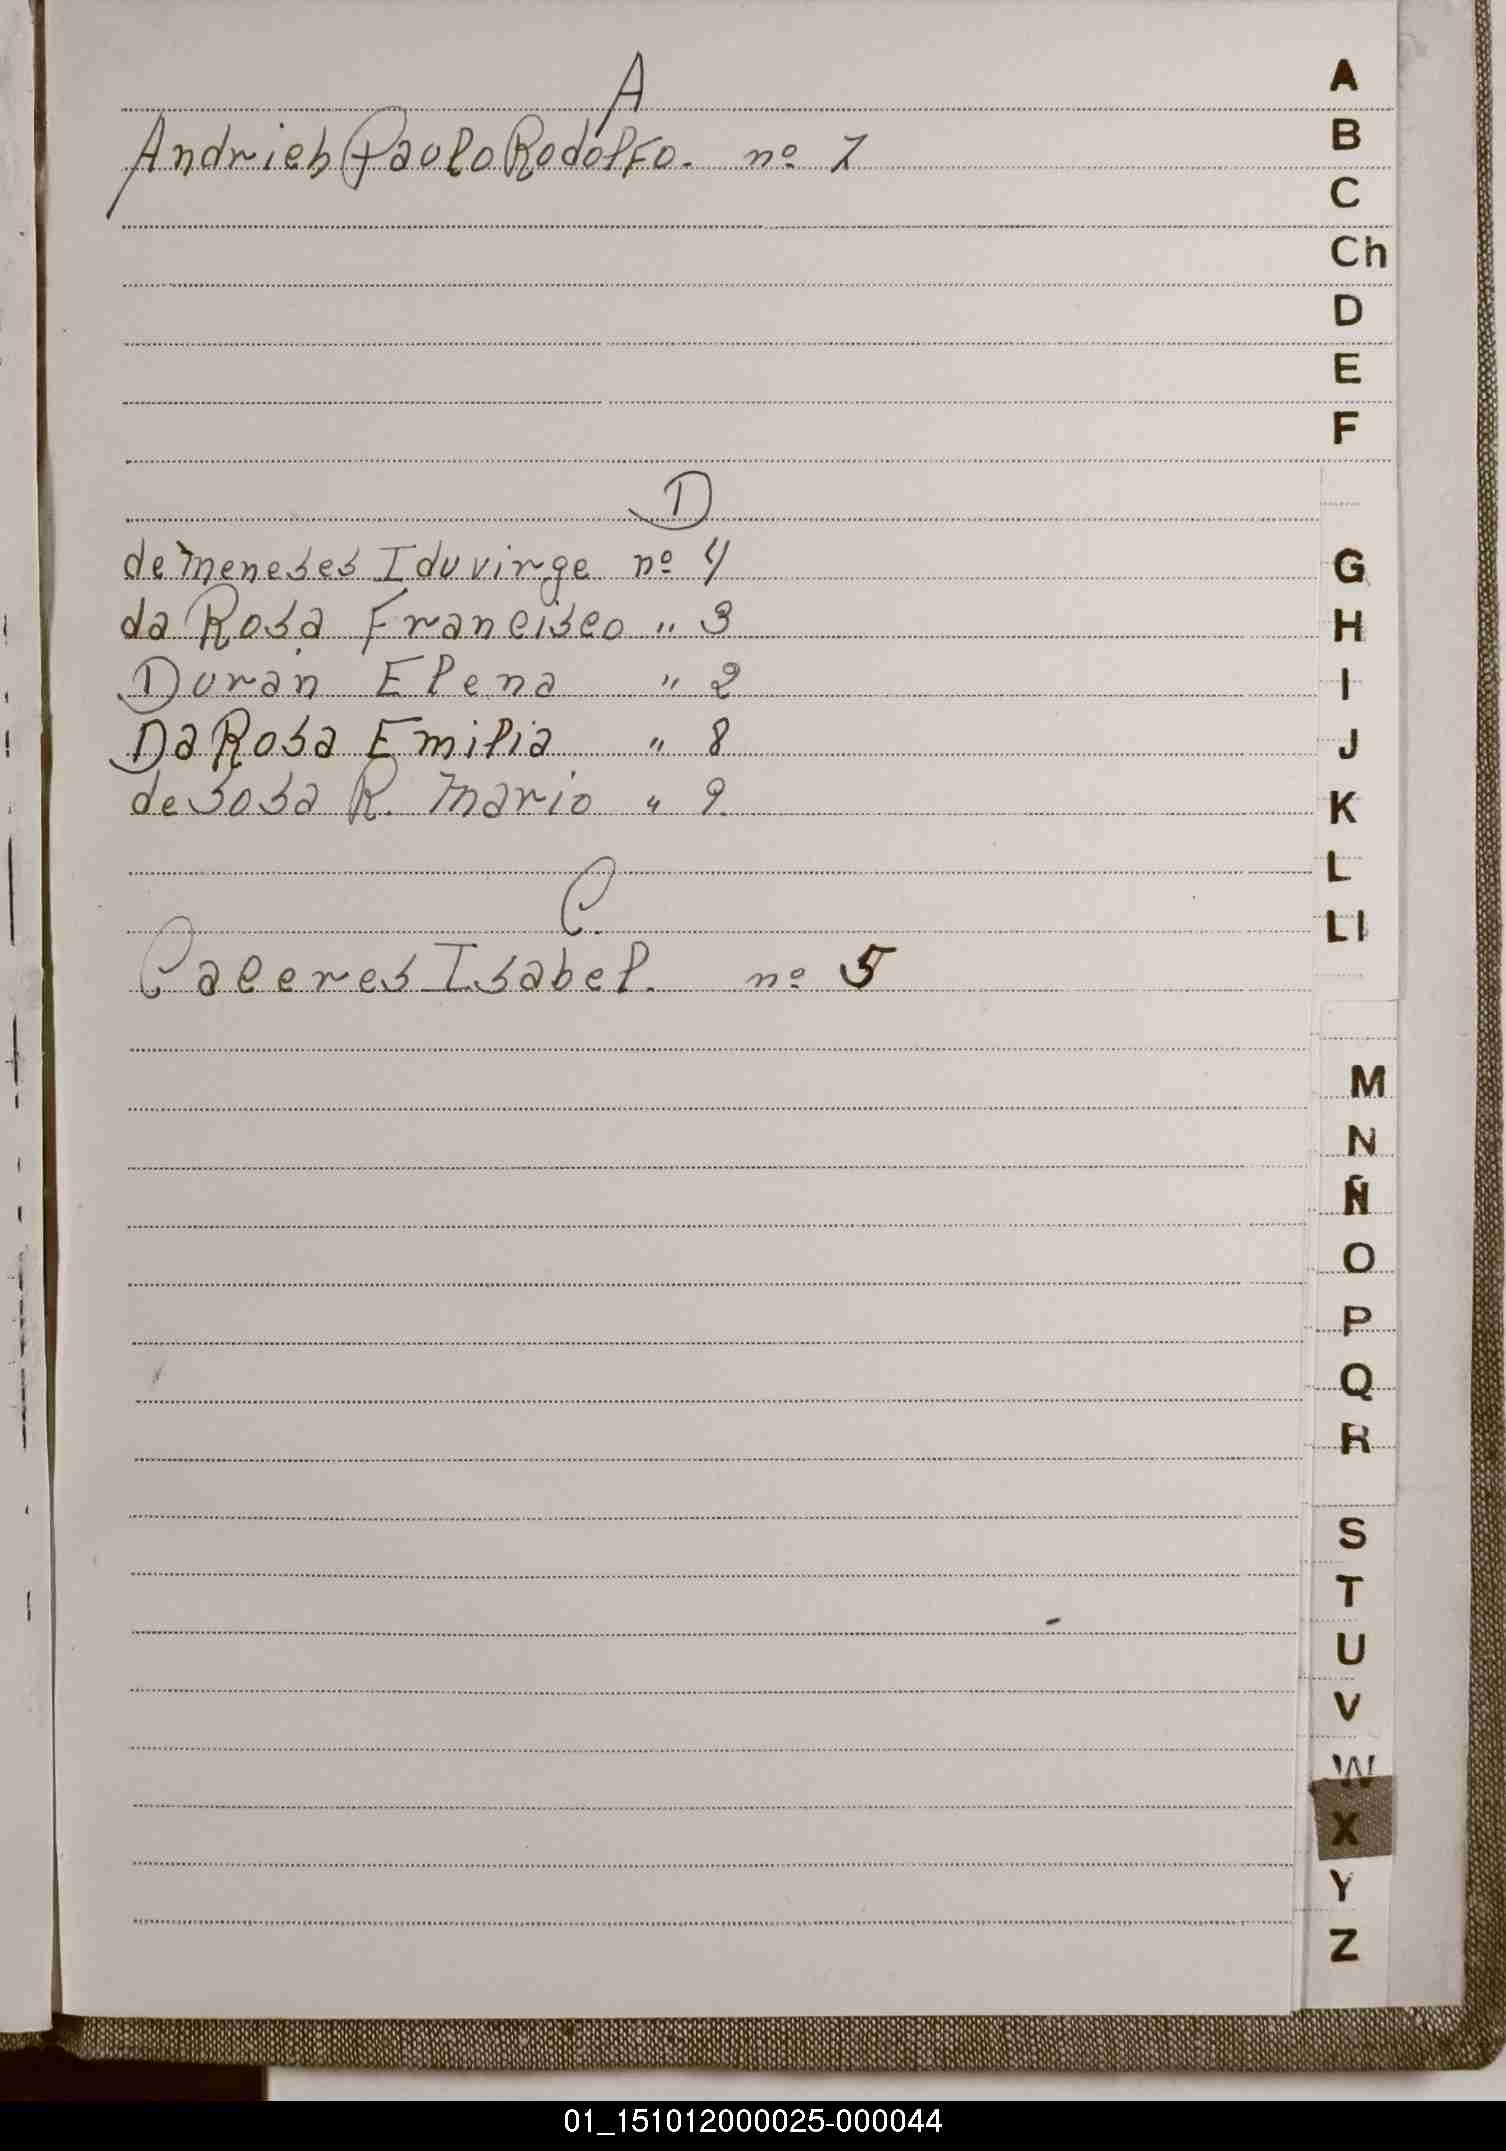 A
Andrieh Paolo Rodolfo. nº 7
D
de Meneses Iduvirge nº 4
da Rosa Francisco " 3
Duran Elena " 2
Da Rosa Emilia " 8
de Sosa R. Mario " 9
C
Caceres Isabel. nº 5
A
B
C
Ch
D
E
F
G
H
I
J
K
L
Ll
M
N
Ñ
O
P
Q
R
S
T
U
V
W
X
Y
Z
01_151012000025-000044